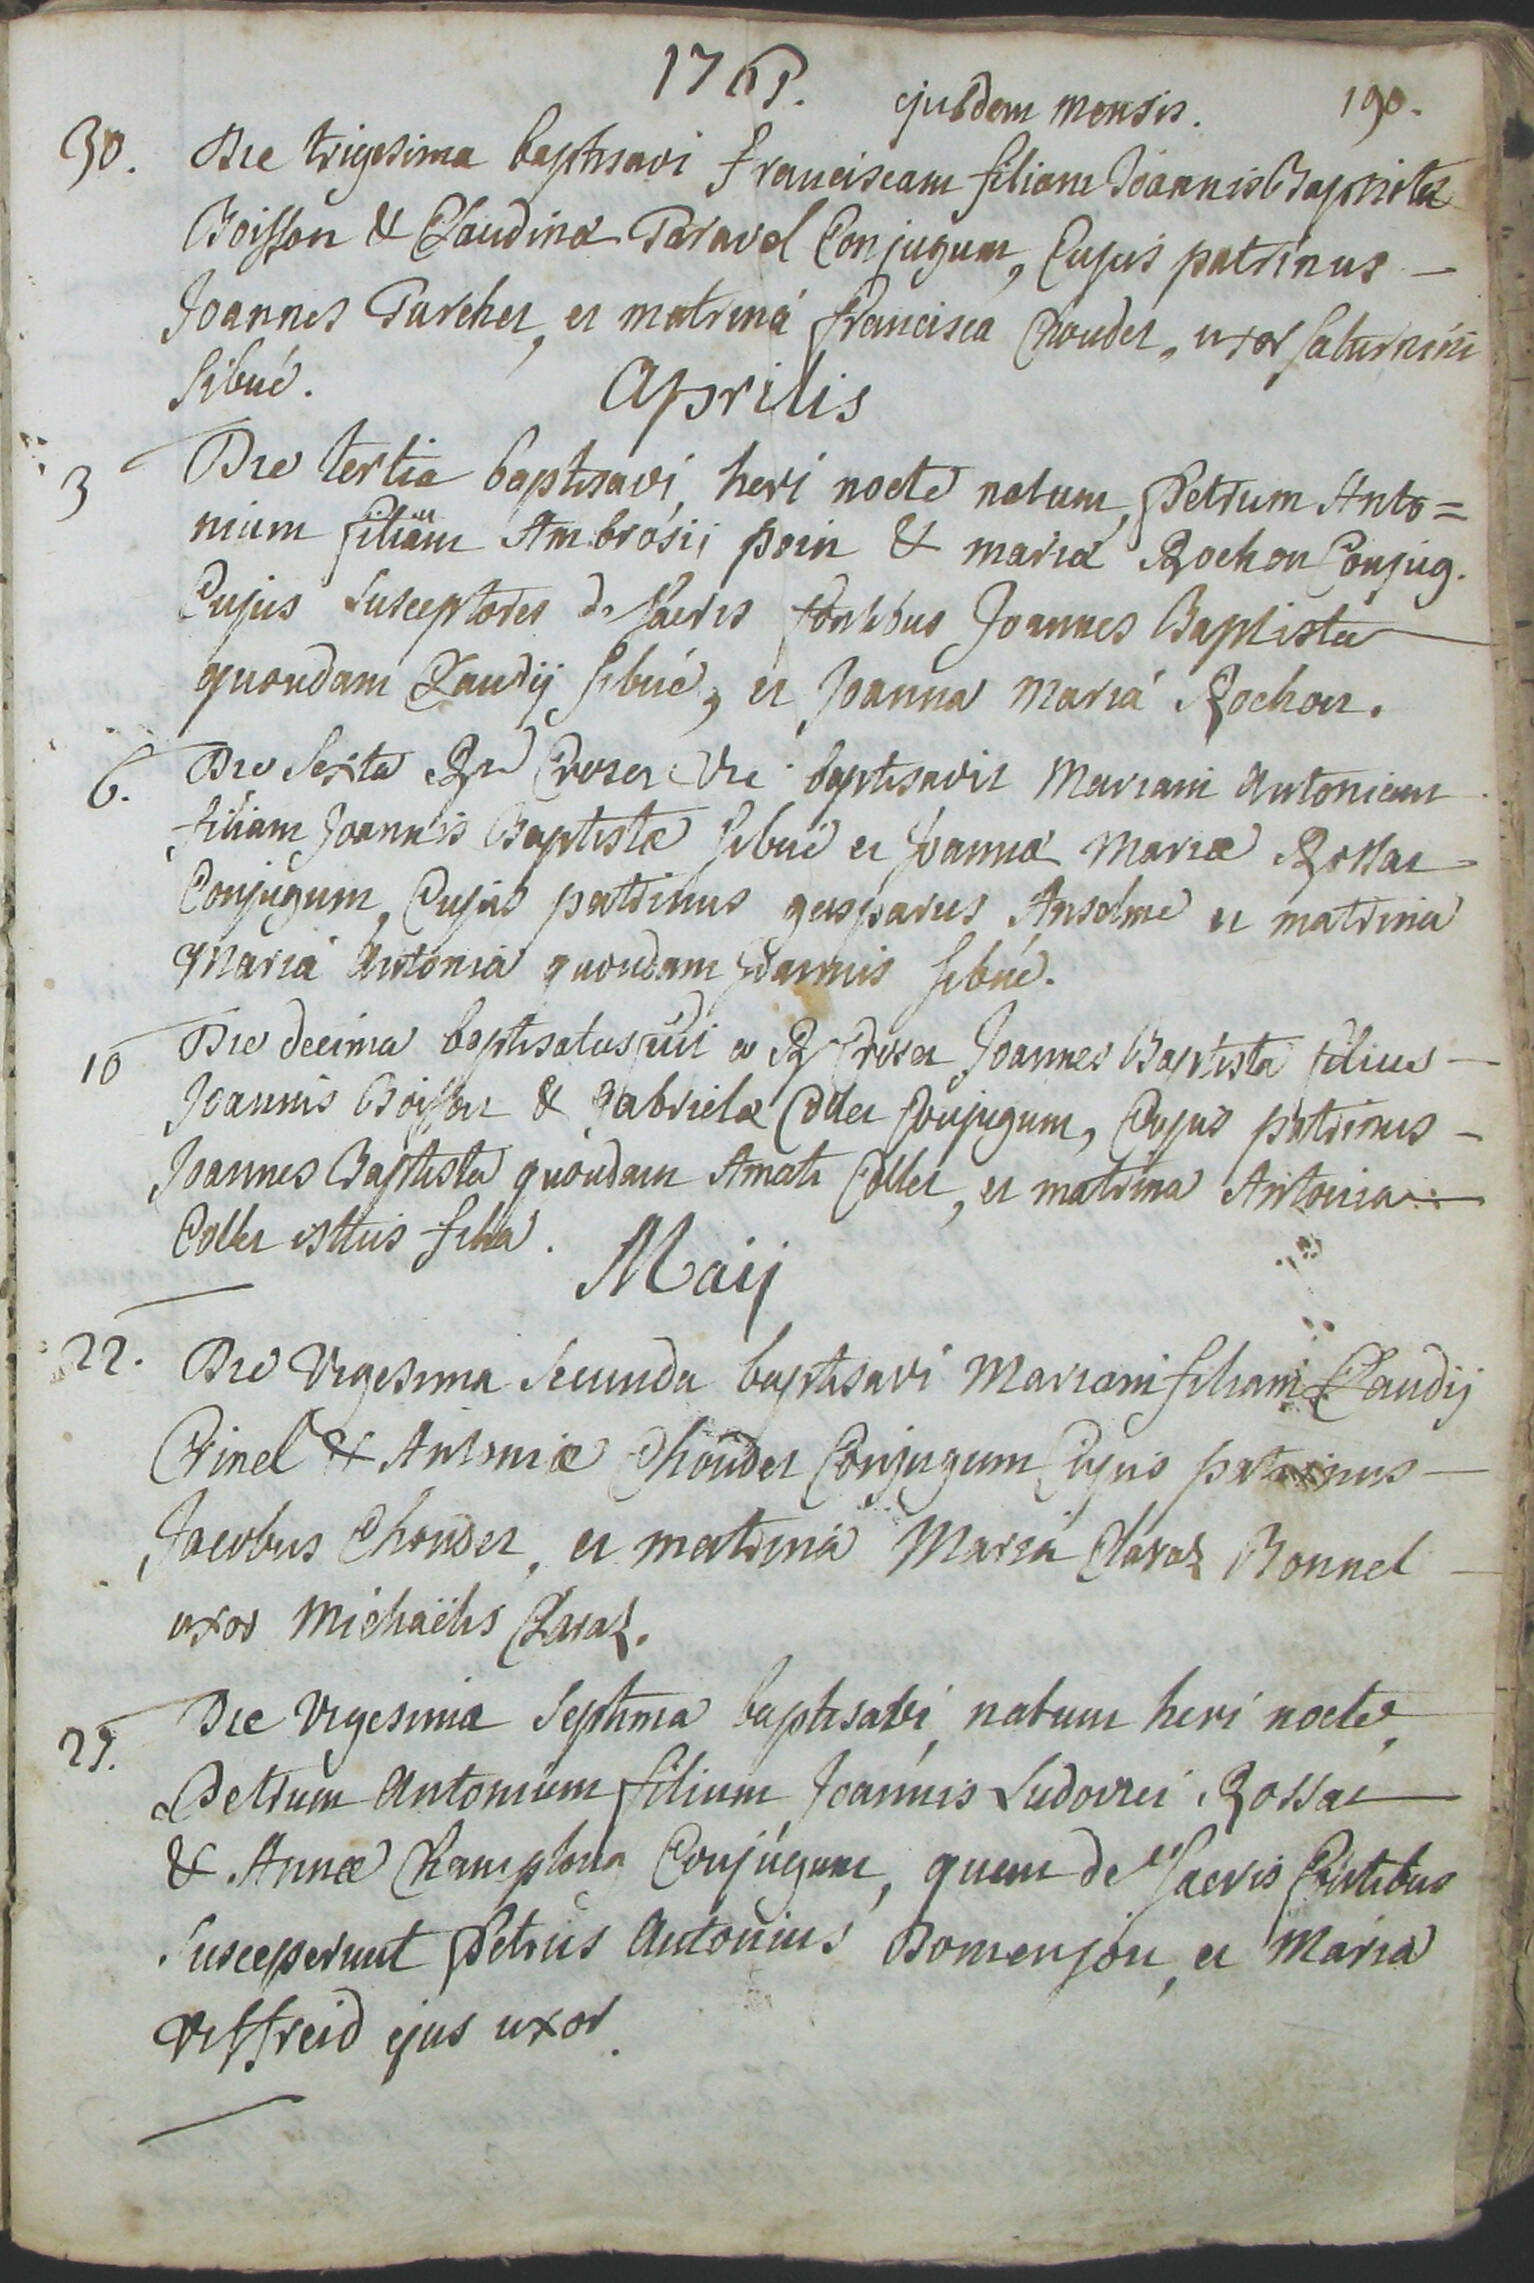 ejusdem mensis. 190.
30. Die trigesima baptisavi Franciscam filiam Joannis Baptistæ
Boisson & Claudinæ Paravel Conjugum, Cujus patrinus —
Joannes Parchet, et matrina Francisca Choudet, uxor Saturnini
Sibué.
Aprilis
3 Die tertia baptisavi, heri nocte natum, Petrum Anto=
nium filium Ambrosii poin & mariæ Rochon Conjug.
Cujus Susceptores de Sacris fontibus Joannes Baptista
quondam Claudij Sibué, et Joanna Maria Rochon.
6. Die Sexta Rd Croset Vic baptisavit Mariam Antoniam
filiam Joannis Baptistæ Sibué et Joannæ Mariæ Rossat
Conjugum, Cujus patrinus gasparus Anselme et matrina
Maria Antonia quondam Joannis Sibué.
10 Die decima baptisatus fuit a Rd Croset Joannes Baptista filius —
Joannis Boisson & gabrielæ Collet Conjugum, Cujus patrinus —
Joannes Baptista quondam Amati Collet, et matrina Antonia
Collet istius filia.
Maij
22. Die Vigesima Secunda baptisavi Mariam filiam Claudij
Crinel & Antoniæ Choudet Conjugum Cujus patrinus —
Jacobus Choudet, et matrina Maria Claraz Bonnel
uxor Michaëlis Claraz.
27. Die Vigesima Septima baptisavi, natum heri nocte,
Petrum Antonium filium Joannis Ludovici Rossat
& Annæ Champlong Conjugum, quem de Sacris fontibus
Susceperunt Petrus Antonius Bomenjon, et Maria
Veffreid ejus uxor.